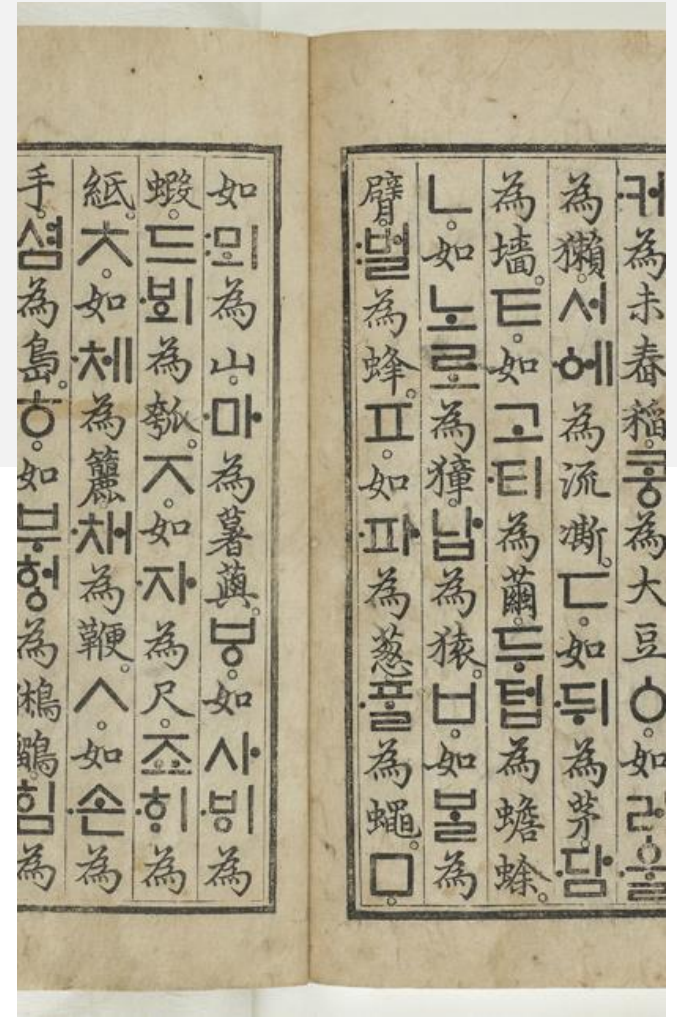 케為未舂稻。코ᇰ為大豆。ㆁ。如러ᅌᅮᆯ
為獺。서ᅌᅦ為流凘。ㄷ。如뒤為茅。담
為墻。ㅌ。如고티為繭。두텁為蟾蜍。
ㄴ。如노로為獐。납為猿。ㅂ。如ᄇᆞᆯ為
臂。벌為蜂。ㅍ。如파為葱。ᄑᆞᆯ為蠅。ㅁ。
如뫼為山。마為薯藇。ㅸ。如사ᄫᅵ為
蝦。드ᄫᅴ為瓠。ㅈ。如자為尺。죠ᄒᆡ為
紙。ㅊ。如체為籭。채為鞭。ㅅ。如손為
手。셤為島。ㅎ。如부허ᇰ為鵂鶹。힘為